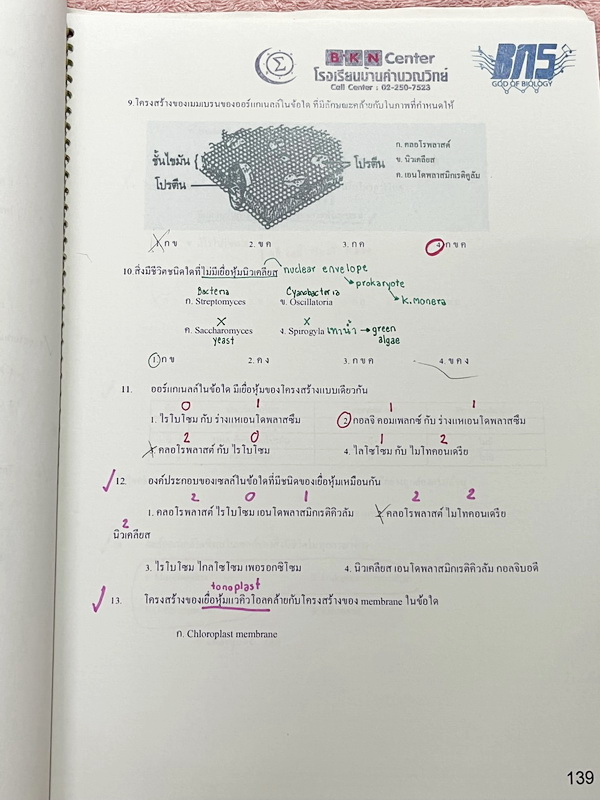 BKN Center
โรงเรียนบ้านคำนวณวิทย์
Call Center : 02-250-7523
BNS
GOD OF BIOLOGY
9.โครงสร้างของเมมเบรนของออร์แกเนลล์ในข้อใด ที่มีลักษณะคล้ายกับในภาพที่กำหนดให้
ชั้นไขมัน
โปรตีน
โปรตีน
ก. คลอโรพลาสต์
ข. นิวเคลียส
ค. เอนโดพลาสมิกเรติคูลัม
1. ก ข 2. ข ค 3. ก ค 4. ก ข ค
10.สิ่งมีชีวิตชนิดใดที่ไม่มีเยื่อหุ้มนิวเคลียส nuclear envelope
prokaryote
K.monera
Bacteria Cyanobacteria
ก. Streptomyces ข. Oscillatoria
X X
ค. Saccharomyces ง. Spirogyla เทาน้ำ → green
yeast algae
1. ก ข 2. ค ง 3. ก ข ค 4. ข ค ง
11. ออร์แกเนลล์ในข้อใด มีเยื่อหุ้มของโครงสร้างแบบเดียวกัน
0 1 1 1
1. ไรโบโซม กับ ร่างแหเอนโดพลาสซึม 2. กอลจิ คอมเพลกซ์ กับ ร่างแหเอนโดพลาสซึม
2 0 1 2
3. คลอโรพลาสต์ กับ ไรโบโซม 4. ไลโซโซม กับ ไมโทคอนเดรีย
12. องค์ประกอบของเซลล์ในข้อใดที่มีชนิดของเยื่อหุ้มเหมือนกัน
2 0 1 2 2
1. คลอโรพลาสต์ ไรโบโซม เอนโดพลาสมิกเรติคิวลัม 2. คลอโรพลาสต์ ไมโทคอนเดรีย
2
นิวเคลียส
3. ไรโบโซม ไกลโซโซม เพอรอกซิโซม 4. นิวเคลียส เอนโดพลาสมิกเรติคิวลัม กอลจิบอดี
tonoplast
13. โครงสร้างของเยื่อหุ้มแวคิวโอลคล้ายกับโครงสร้างของ membrane ในข้อใด
ก. Chloroplast membrane
139